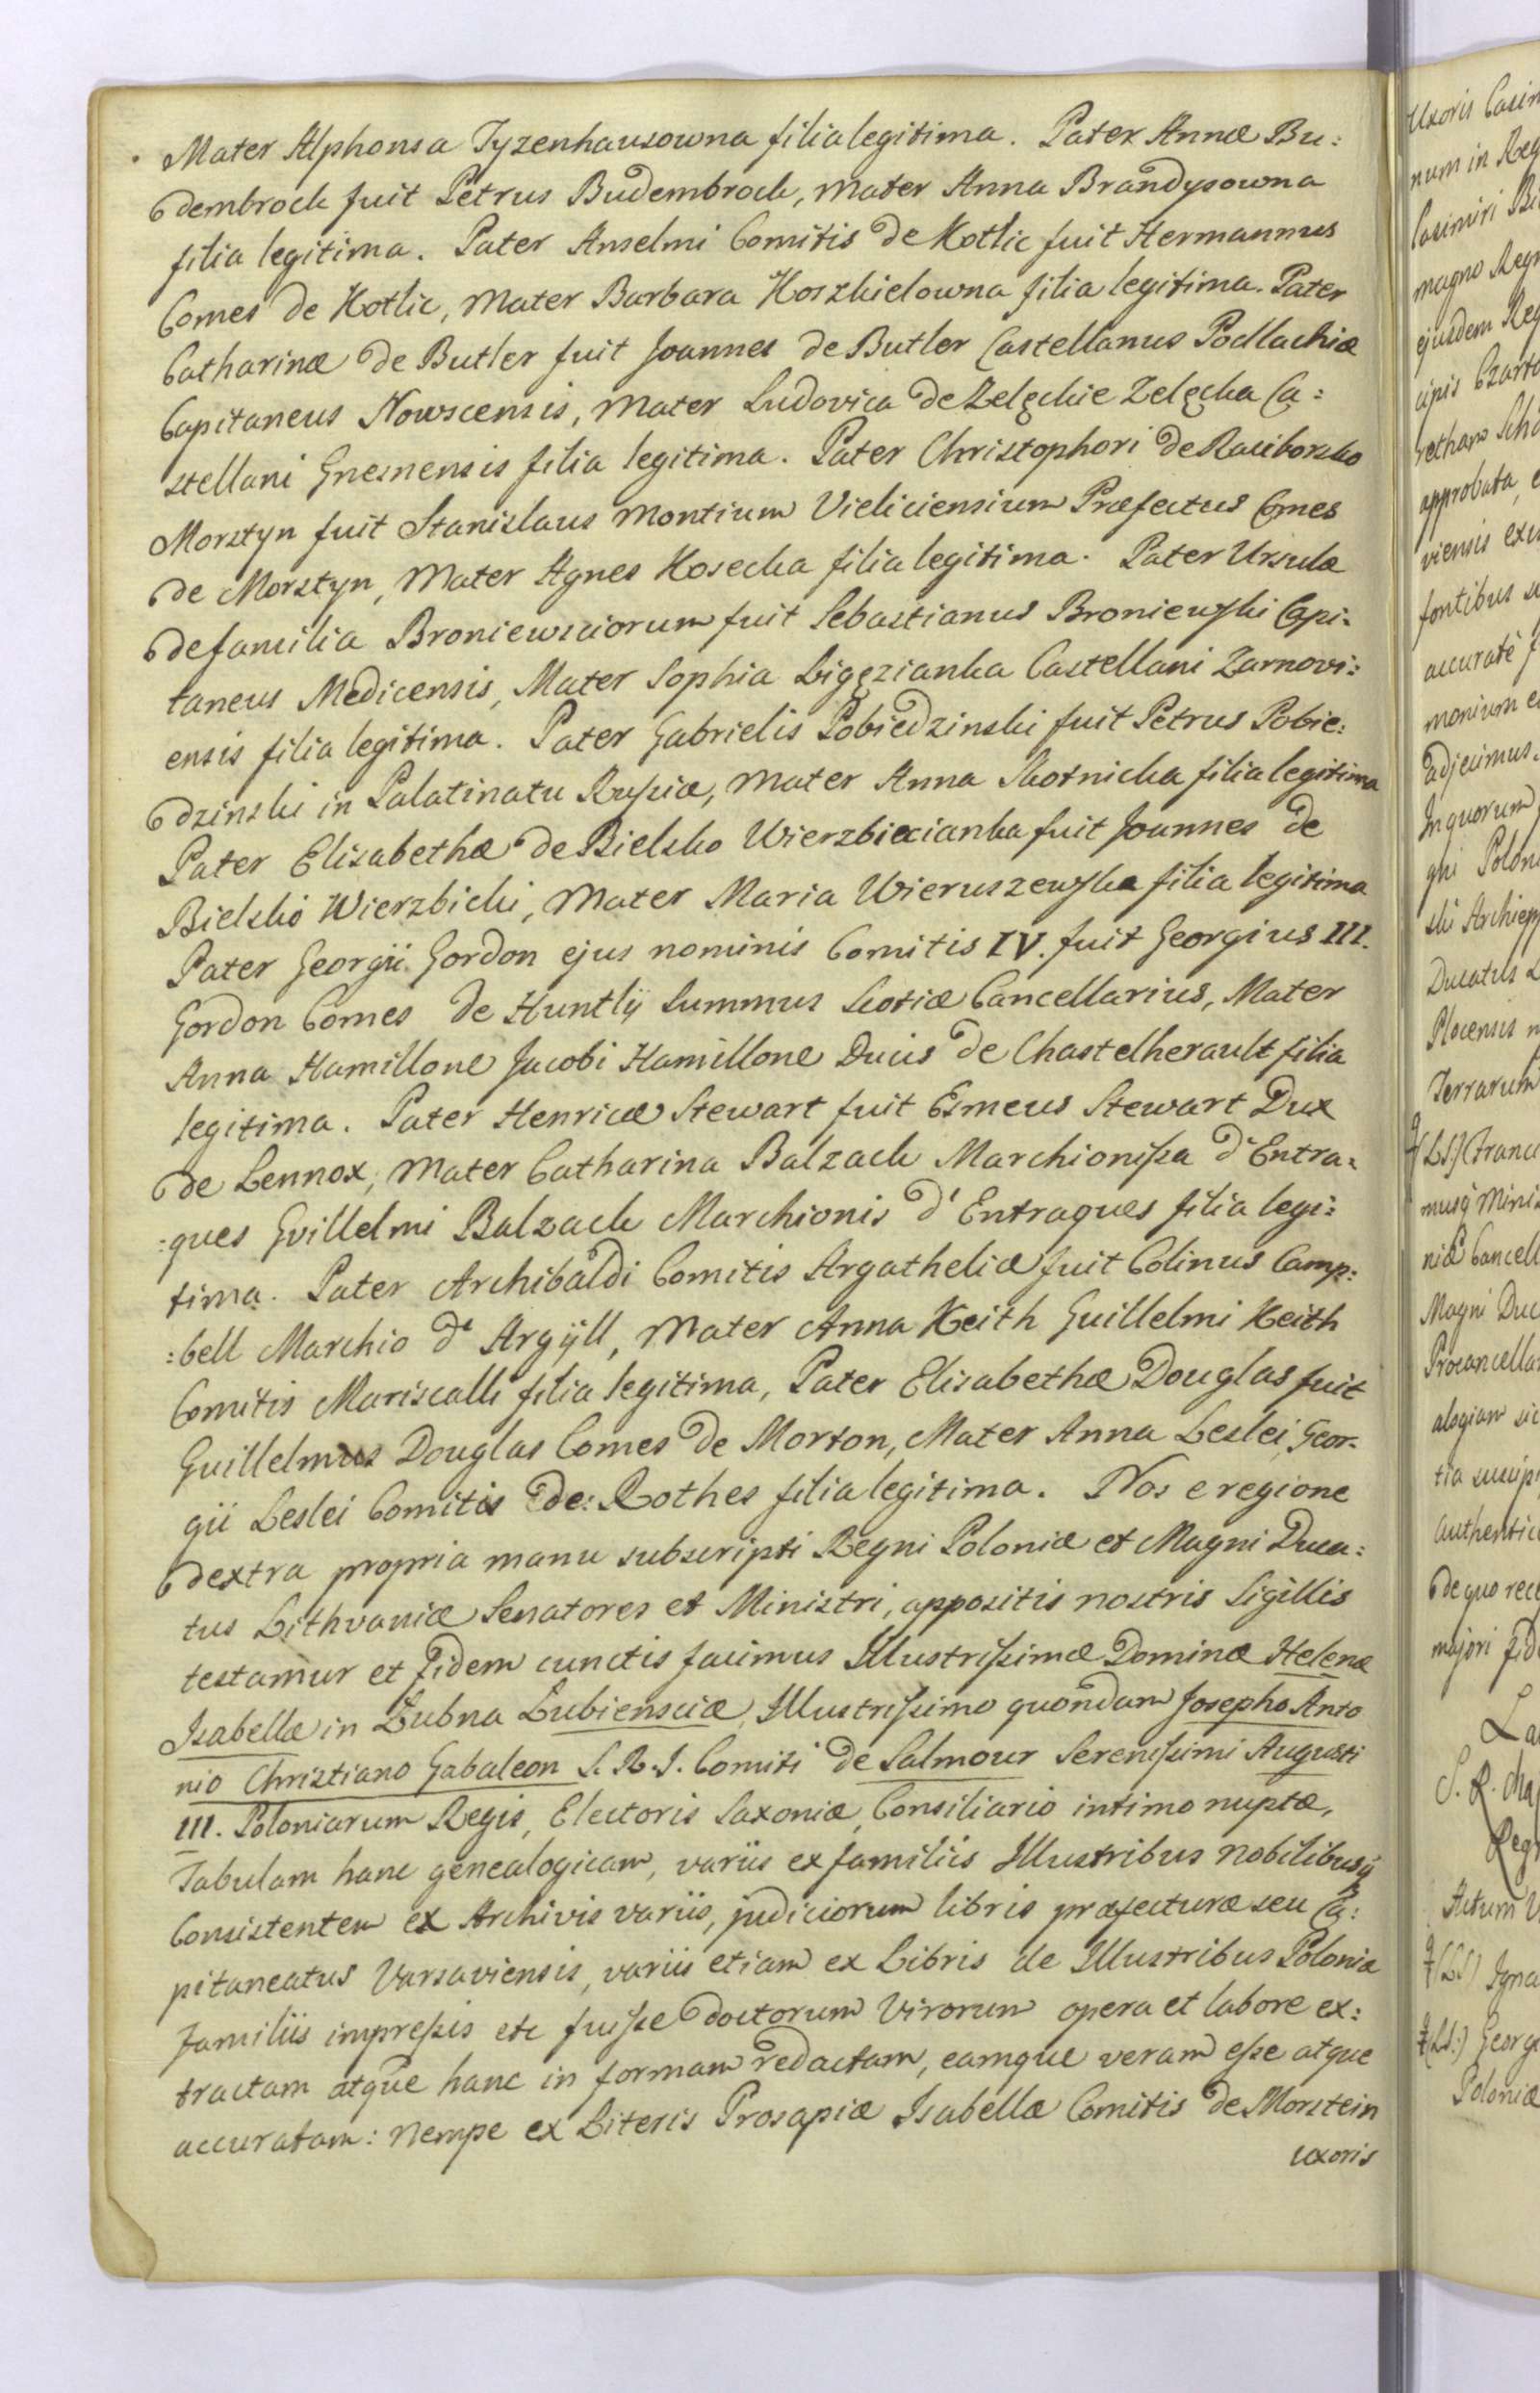 Mater Alphonsa Tyzenhausowna filia legitima. Pater Annæ Bu:
dembrock fuit Petrus Budembrock, Mater Anna Brandysowna
filia legitima. Pater Anselmi Comitis de Kotlic fuit Hermannus
Comes de Kotlic, Mater Barbara Koszkielowna filia legitima. Pater
Catharinæ de Butler fuit Joannes de Butler Castellanus Podlachiæ
Capitaneus Nowscensis, Mater Ludovica de Zelęckie Zelęcka Ca:
stellani Gnesnensis filia legitima. Pater Christophori de Raciborsko
Morsztyn fuit Stanislaus Montium Vieliciensium Præfectus Comes
de Morsztyn, Mater Agnes Kosecka filia legitima. Pater Ursulæ
de familia Broniewsciorum fuit Sebastianus Broniewski Capi:
taneus Medicensis, Mater Sophia Ligęzianka Castellani Zarnovi:
ensis filia legitima. Pater Gabrielis Pobiedzinski fuit Petrus Pobie:
dzinski in Palatinatu Russiæ, Mater Anna Skotnicka filia legitima
Pater Elisabethæ de Bielsko Wierzbiecianka fuit Joannes de
Bielsko Wierzbicki, Mater Maria Wieruszewska filia legitima
Pater Georgii Gordon ejus nominis Comitis IV. fuit Georgius III.
Gordon Comes de Huntly Summus Scotiæ Cancellarius, Mater
Anna Hamillone Jacobi Hamillone Ducis de Chastelherault filia
legitima. Pater Henricæ Stewart fuit Esmeus Stewart Dux
de Lennox, Mater Catharina Balzack Marchionissa d'Entra:
:ques Gvillelmi Balzack Marchionis d'Entraques filia legi:
tima. Pater Archibaldi Comitis Argatheliæ fuit Colinus Camp:
:bell Marchio d'Argÿll, Mater Anna Keith Guillelmi Keith
Comitis Mariscalli filia legitima, Pater Elisabethæ Douglas fuit
Guillelmus Douglas Comes de Morton, Mater Anna Leslei Geor-
gii Leslei Comitis de Rothes filia legitima. Nos e regione
dextra propria manu subscripti Regni Poloniæ et Magni Duca:
tus Lithvaniæ Senatores et Ministri, appositis nostris Sigillis
testamur et fidem cunctis facimus Illustrissimæ Dominæ Helenæ
Isabellæ in Łubna Łubiensciæ, Illustrissimo quondam Josepho Anto
nio Christiano Gabaleon S. R. I. Comiti de Salmour Serenissimi Augusti
III. Poloniarum Regis, Electoris Saxoniæ, Consiliario intimo nuptæ,
Tabulam hanc genealogicam, variis ex familiis Illustribus Nobilibusq
Consistentem ex Archivis variis, judiciorum libris præfecturæ seu Ca:
pitaneatus Varsaviensis, variis etiam ex Libris de Illustribus Poloniæ
familiis impressis etc fuisse doctorum Virorum opera et labore ex:
tractam atque hanc in formam redactam, eamque veram esse atque
accuratam: Nempe ex Literis Prosapiæ Isabellæ Comitis de Morstein
uxoris
Uxoris Casim
num in Reg
Casimiri Bi
magno Regn
ejusdem Reg
cipis Czarto
approbata, e
viensis
fontibus
accuratè f
monium
adjecimus.
In quorum
gni Polon
ski Archiep
Ducatus L
Plocensis
Terrarum
(LS) Franc
musq Minis
niæ Cancell
Magni Duc
Procancellar
alogiam sic
tia suscip
Authentic
de quo rec
majori fid
S. R. Maj
Reg
Actum V
(LS) Igna
(LS.) Georg
Poloniæ